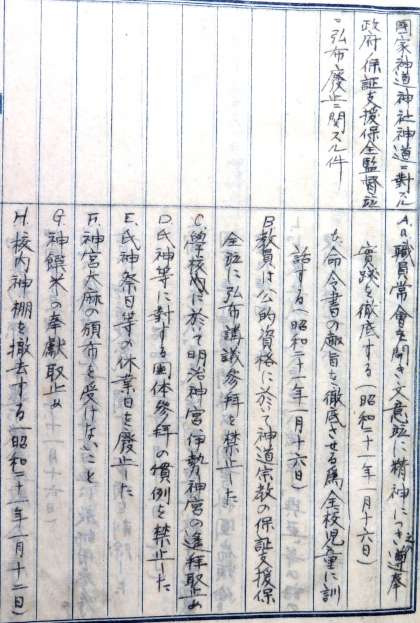 国家神道神社神道ニ對スル
政府ノ保証支援保全監督竝
ニ弘布ノ廢止ニ関スル件
A.a.職員常會を開き文意竝に精神につき遵奉
實踐を徹底する(昭和二十一年一月十六日)
b.命令書の敵旨を徹底させる為全校児童に訓
話する(昭和二十一年一月十六日)
B教員は公的資格に於いて神道宗教の保証支援保
全竝に弘布講議参拜を禁止した
C學校内に於て明治神宮伊勢神宮の遙拜取止め
D.氏神等に対する団体参拜の慣例を禁止した
E.氏神祭日等の休業日を廢止した
F.神宮大麻の頒布を受けないこと
G.神饌米の奉獻取止め
H.校内神棚を撤去する(昭和二十一年一月十二日)